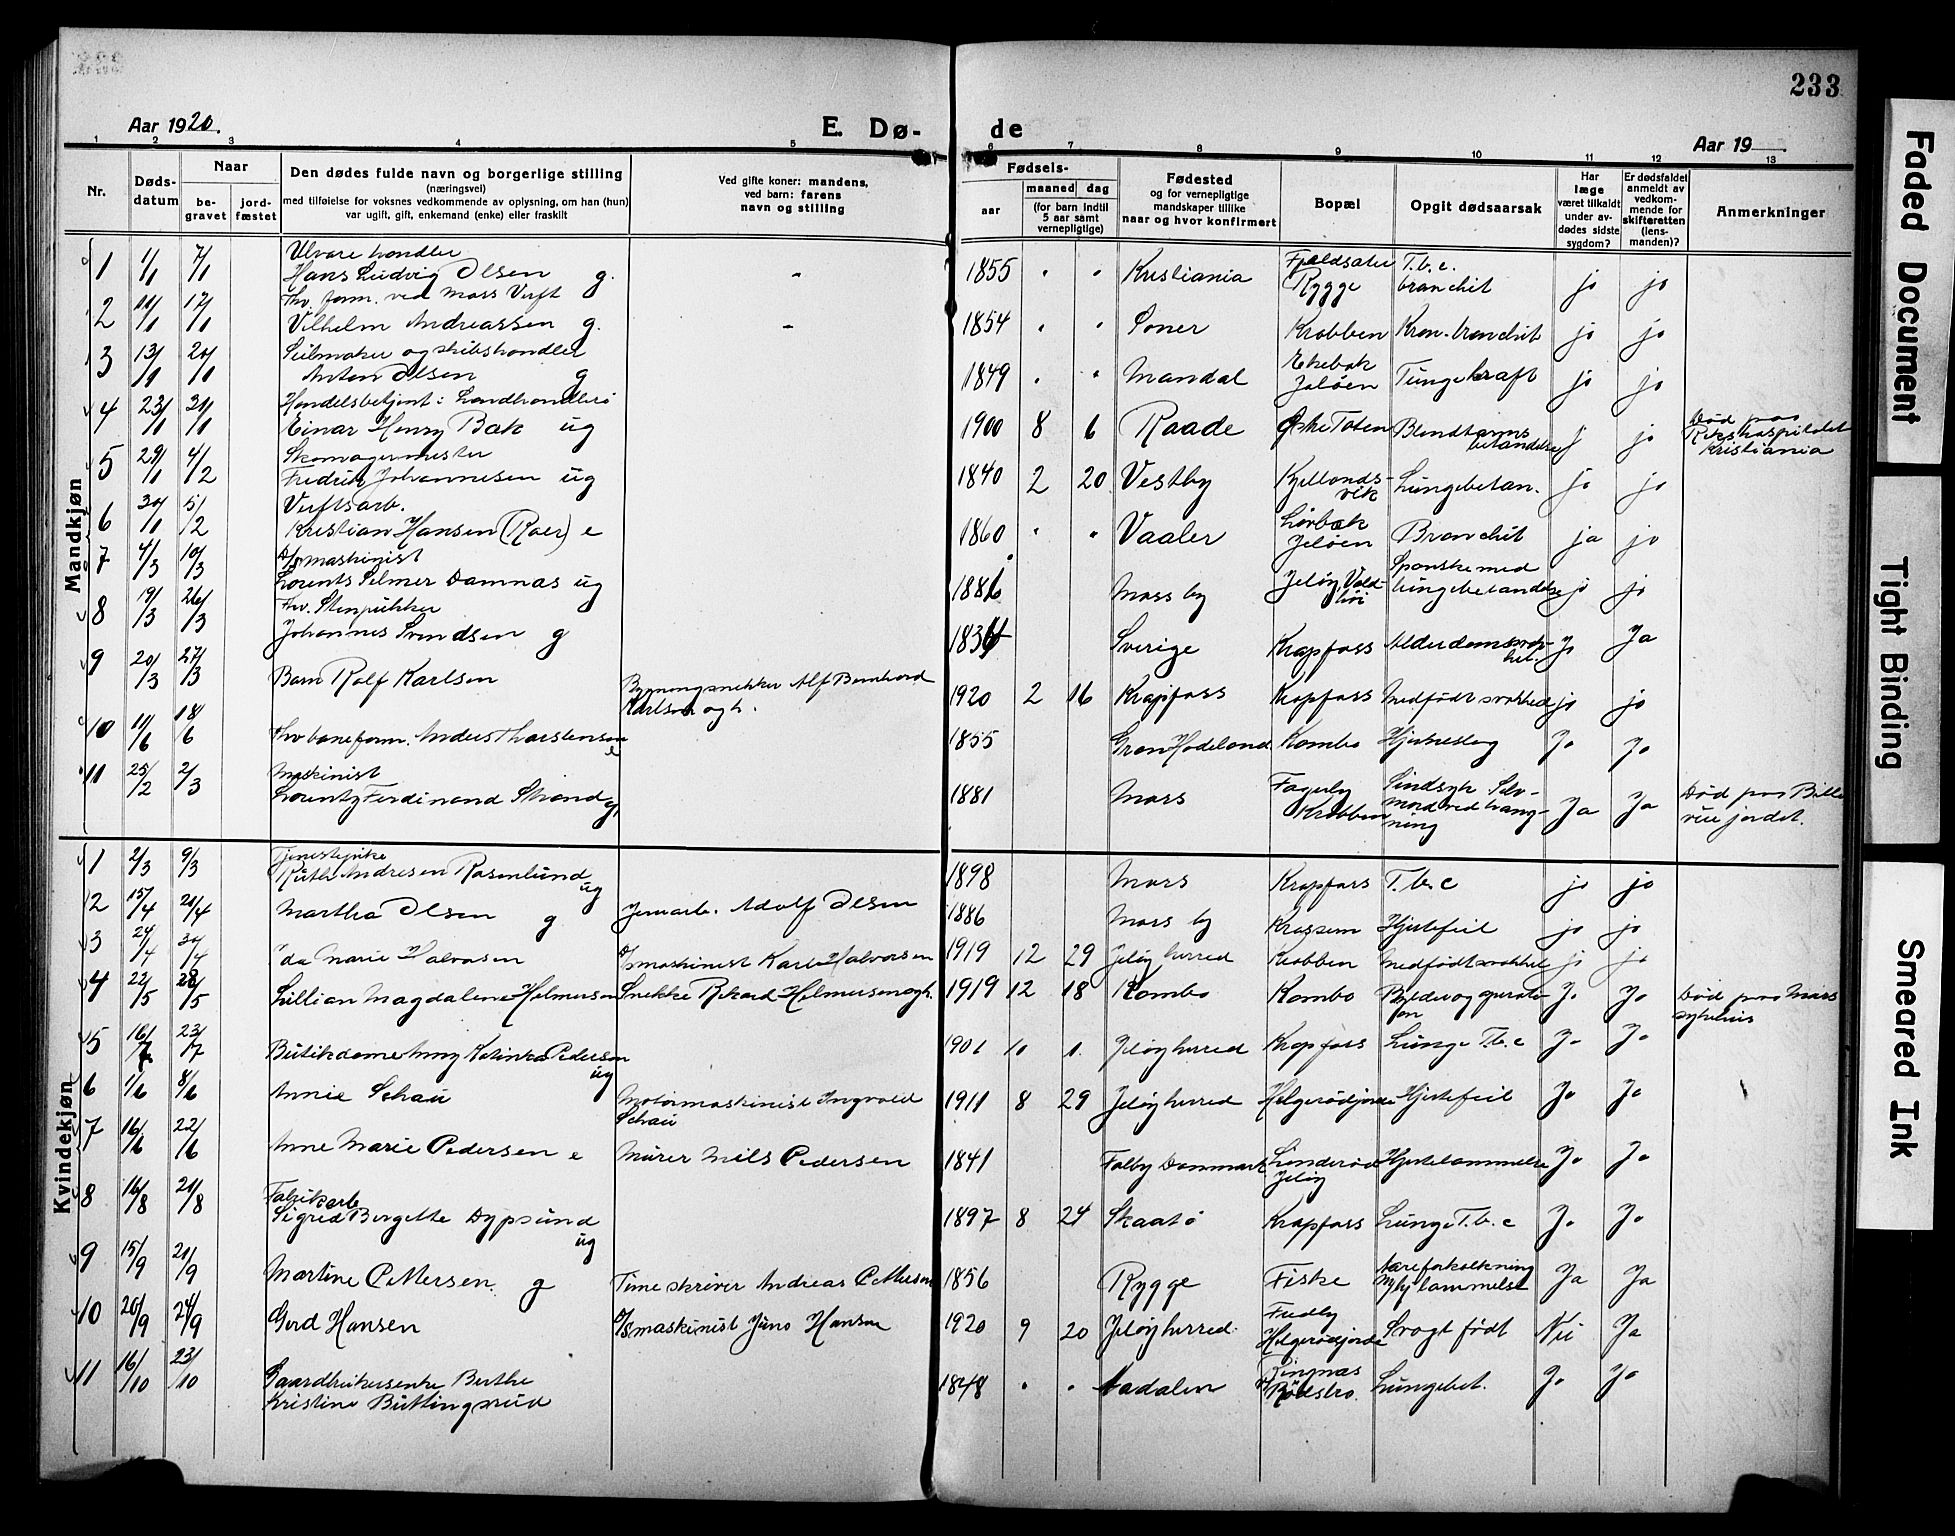 233
Aar 1920.
E. Dø-
de
Aar 19
1 2 3 4 5 6 7 8 9 10 11 12 13
Nr.
Døds-
datum
Naar
be-
gravet
jord-
fæstet
Den dødes fulde navn og borgerlige stilling
(næringsvei)
med tilføielse for voksnes vedkommende av oplysning, om han (hun)
var ugift, gift, enkemand (enke) eller fraskilt
Ved gifte koner: mandens,
ved barn: farens
navn og stilling
Fødsels-
aar
maaned
dag
(for barn indtil
5 aar samt
vernepligtige)
Fødested
og for vernepligtige
mandskaper tillike
naar og hvor konfirmert
Bopæl
Opgit dødsaarsak
Har
læge
været tilkaldt
under av-
dødes sidste
sygdom?
Er dødsfaldet
anmeldt av
vedkom-
mende for
skifteretten
(lens-
manden)?
Anmerkninger
Mandkjøn
1 1/1 7/1 Ulvarehandler
Hans Ludvig Olsen g. - 1855 " " Kristiania Fjeldsæter Rygge T.b.c. bronchit jo jo
2 11/1 17/1 Fhv. form. ved Moss Verft
Vilhelm Andreassen g. - 1854 " " Soner Krobben Kron. bronchit jo jo
3 13/1 20/1 Seilmaker og skibshandler
Anton Olsen g 1849 " " Mandal Ekebæk Jeløen Tungekræft jo jo
4 23/1 31/1 Handelsbetjent i Landhandleri
Einar Henry Bæk ug 1900 8 6 Raade Østre Toten Blindtarms betændelse j jo Død paa Rikshospitalet Kristiania
5 29/1 4/2 Skomagermester
Fredrik Johannesen ug 1840 2 20 Vestby Kjellands-vik Lungebetæn. jo jo
6 30/1 5/2 Verftsarb.
Kristian Hansen (Roer) e 1860 " " Vaaler Lørbæk Jeløen Bronchit ja jo
7 4/3 10/3 D/smaskinist
Lorents Selmer Damnæs ug 1886 Moss by Jeløy, Spanske med lungebetændelse jo jo
8 19/3 26/3 Fhv. Stenpikker
Johannes Svendsen g 1834 Sverige Krapfoss Alderdomssvak-het. Jo Ja
9 20/3 27/3 Barn Rolf Karlsen Bygningsnekker Alf Bernhard
Karlsen og h. 1920 2 16 Krapfoss Krapfoss Medfødt svakhed jo jo
10 11/6 18/6 Fhv baneform. Anders Thorstensen
e 1855 Gran Hadeland Kambo Hjerteslag Jo Jo
11 25/2 2/3 Maskinist
Lorentz Ferdinand Strand g, 1881 Moss Fagerby Krobben Sindsyk Selv-mord ved hæng-ning Ja Ja Død paa Belle
vue jordet.
Kvindekjøn
1 2/3 9/3 Tjenestepike
Ruth Andresen Rosenlund
ug 1898 Moss Krapfoss T.b.c jo jo
2 15/4 21/4 Martha Olsen g Jernarb. Adolf Olsen 1886 Moss by Krossern Hjertefeil jo jo
3 24/4 30/4 Ida Marie Halvorsen D/smaskinist Karl Halvorsen 1919 12 29 Jeløy herred Krobben Medfødt svakhet jo jo
4 22/5 28/5 Lillian Magdalene Helmersen Snekke Rikard Helmersen og h. 1919 12 18 Kambo Kambo Jo Jo Død paa Moss
sykehus
5 16/7 23/7 Butikdame Anny Katinka Pedersen
ug 1901 10 1. Jeløy herred Krapfoss Lunge T.b.c Jo Jo
6 1/6 8/6 Annie Schau Motormaskinist Ingvald
Schau 1911 8 29 Jeløy herred Helgerødjorde Hjertefeil Jo Jo
7 16/6 22/6 Anne Marie Pedersen e Murer Nils Pedersen 1841 Falby Danmark Jeløy Hjertelammelse Jo Jo
8 16/8 21/8 Fabrikarb
Sigrid Bergette Dypsund
ug 1897 8 24 Skaatø Krapfoss Lunge T.b.c Jo Jo
9 15/9 21/9 Martine Pettersen. g Timeskriver Andreas Pettersen 1856 Rygge Fiske Aareforkalkning lammelse Ja Ja
10 20/9 24/9 Gerd Hansen D/smaskinist Juno Hansen 1920 9 20 Jeløy herred. Fredly
Helgerødjorde Svagt født Nei Ja
11 16/10 23/10 Gaardbrukerenke Berthe
Kristine Buttingsrud 1848 " " Aadalen Ringnæs Rødsbro. Lungebet. Jo Jo
Faded Document
Tight Binding
Smeared Ink